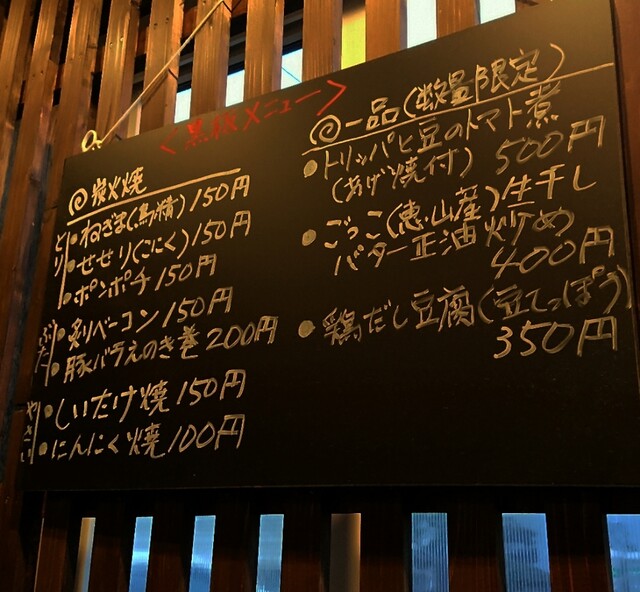 <黒板メニュー>
炭火焼
とり
・ねぎま(鳥精)150円
・せせり(こにく)150円
・ポンポチ150円
ぶた
・炙りベーコン150円
・豚バラえのき巻200円
やさい
・しいたけ焼150円
・にんにく焼100円
一品(数量限定)
・トリッパと豆のトマト煮
(あげ焼付) 500円
・ごっこ(恵山産)生干し
バター正油炒め
400円
・鶏だし豆腐(豆てっぽう)
350円